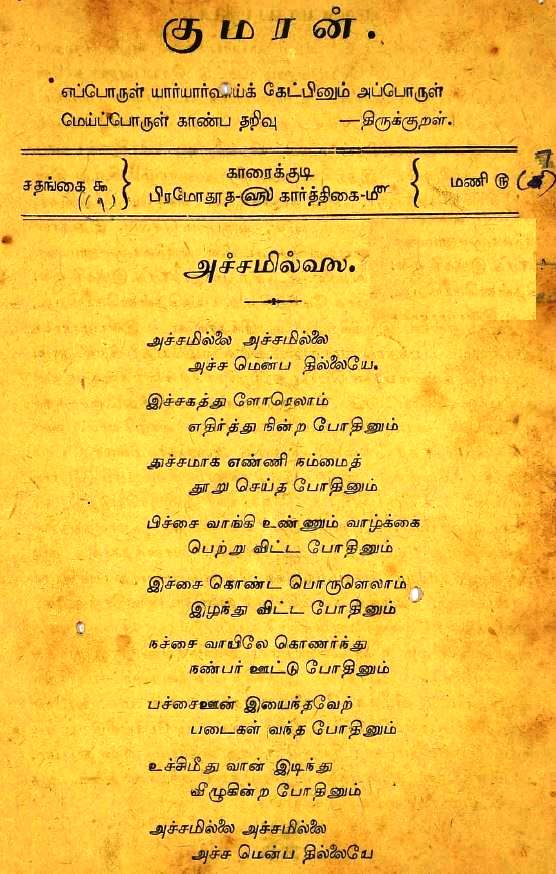 குமரன்.
எப்பொருள் யார்யார்வாய்க் கேட்பினும் அப்பொருள்
மெய்ப்பொருள் காண்ப தறிவு —திருக்குறள்.
சதங்கை ௯
(௧)
காரைக்குடி
பிரமோதூத-௵ கார்த்திகை-௴
மணி ௫
அச்சமில்லை.
அச்சமில்லை அச்சமில்லை
அச்ச மென்ப தில்லையே.
இச்சகத்து ளோரெலாம்
எதிர்த்து நின்ற போதினும்
துச்சமாக எண்ணி நம்மைத்
தூறு செய்த போதினும்
பிச்சை வாங்கி உண்ணும் வாழ்க்கை
பெற்று விட்ட போதினும்
இச்சை கொண்ட பொருளெலாம்
இழந்து விட்ட போதினும்
நச்சை வாயிலே கொணர்ந்து
நண்பர் ஊட்டு போதினும்
பச்சைஊன் இயைந்தவேற்
படைகள் வந்த போதினும்
உச்சிமீது வான் இடிந்து
வீழுகின்ற போதினும்
அச்சமில்லை அச்சமில்லை
அச்ச மென்ப தில்லையே